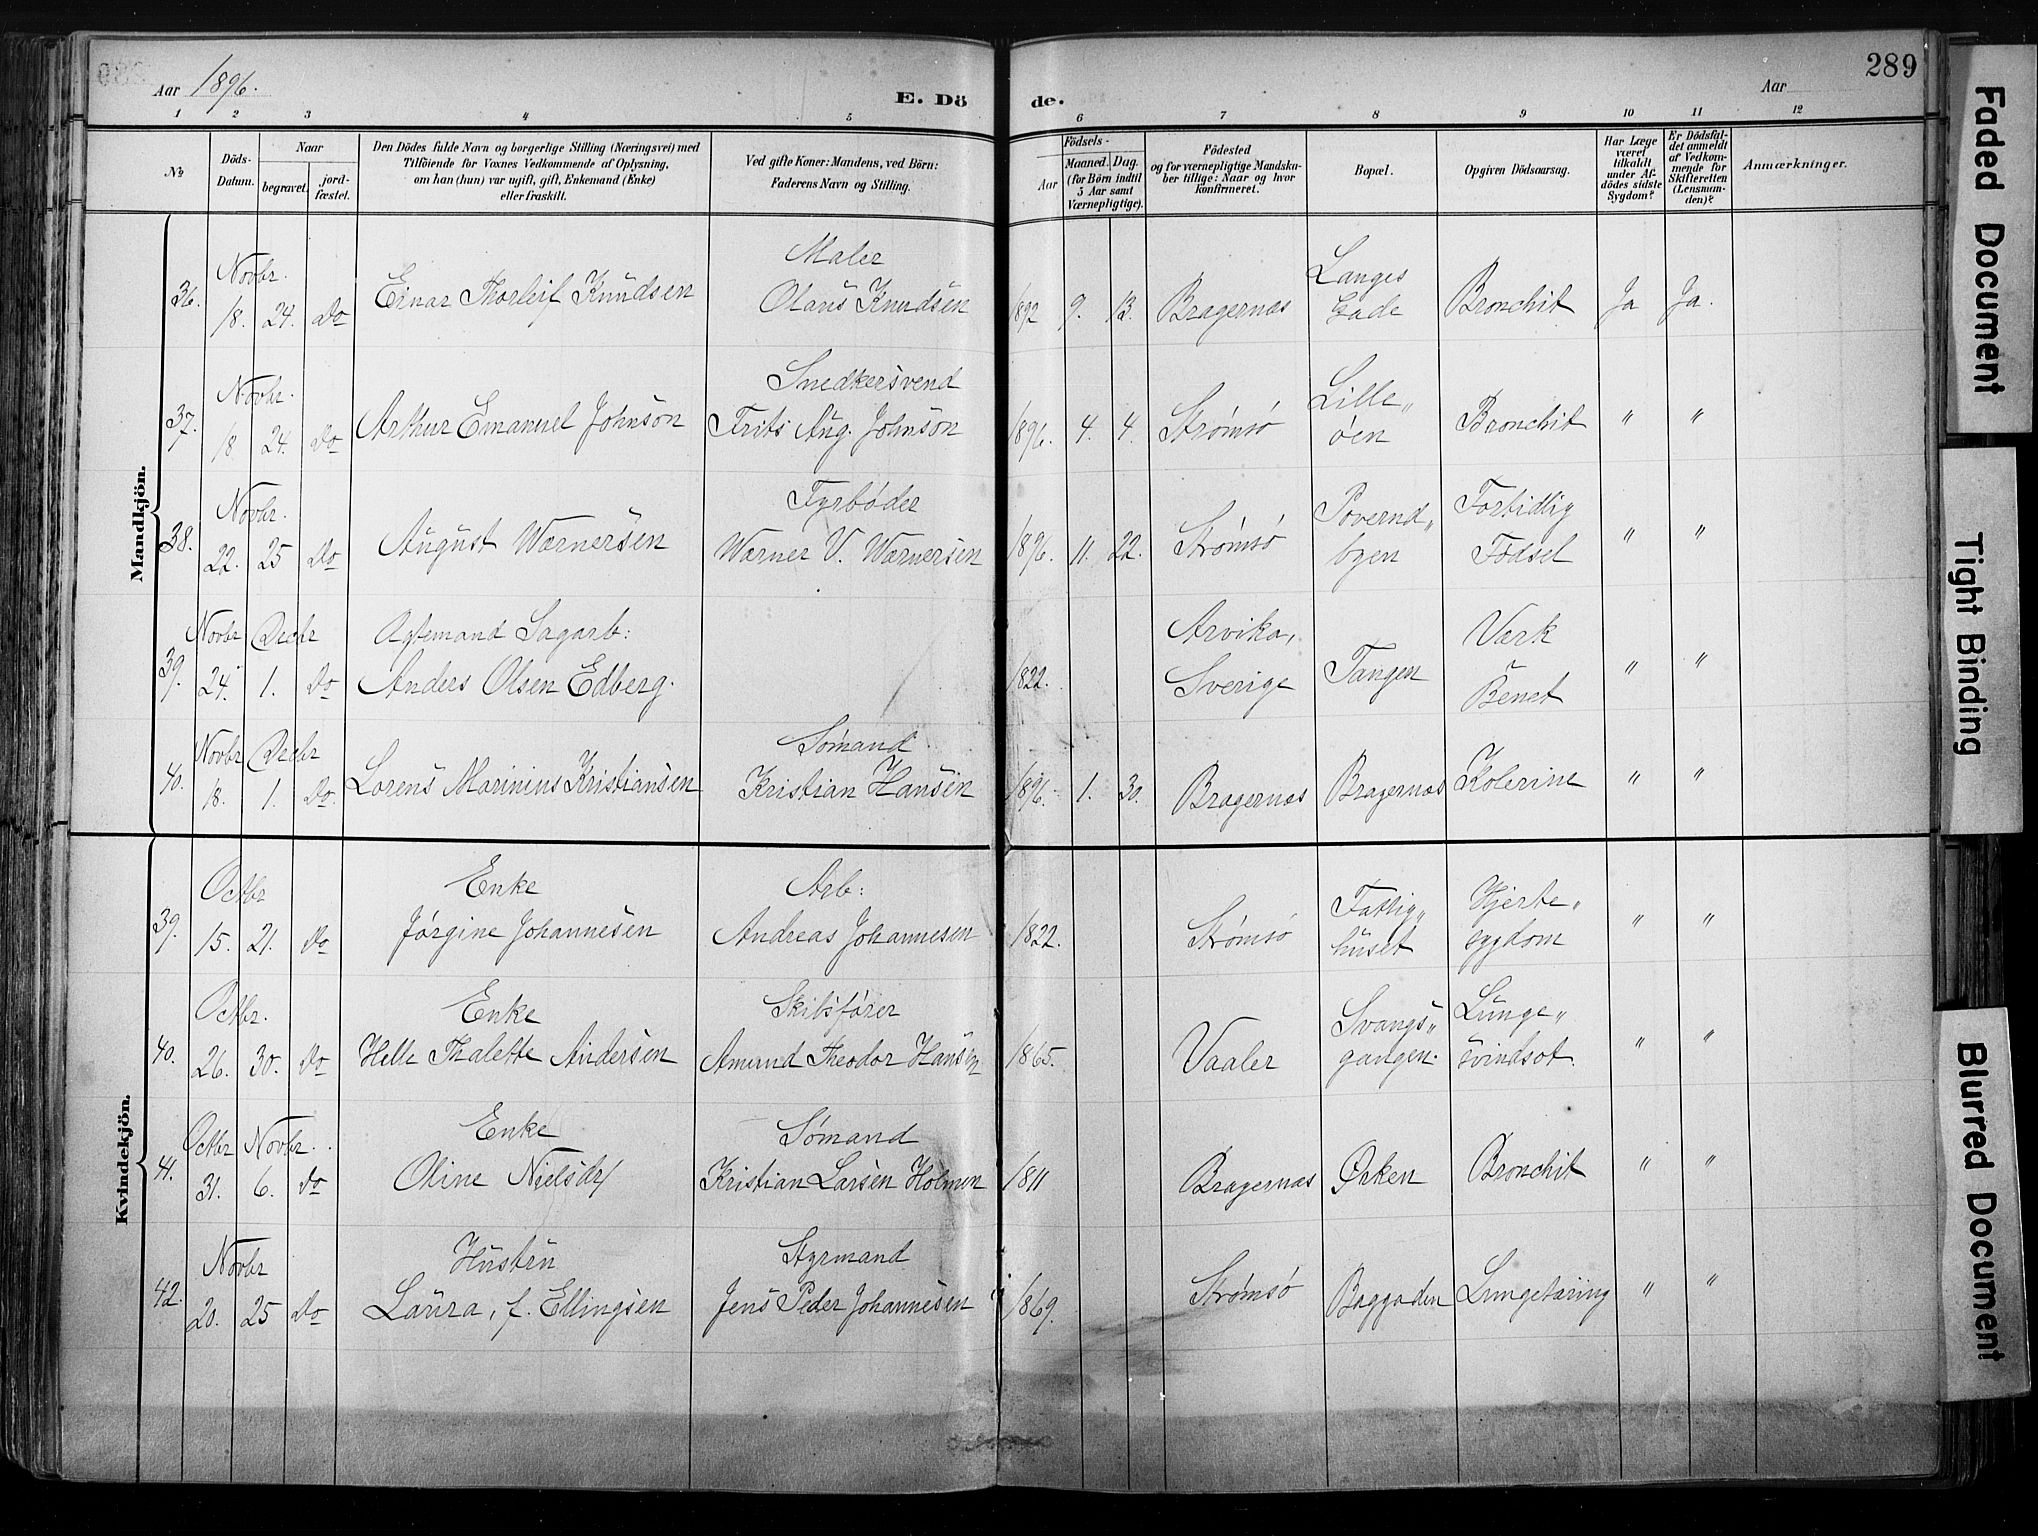 289
Aar 1896.
E. Dö de.
Aar
1 2 3 4 5 6 7 8 9 10 11 12
No
Döds-Datum.
Naar
begravet.
jord-fæstet.
Den Dödes fulde Navn og borgerlige Stilling (Næringsvei) med
Tilföiende for Voxnes Vedkommende af Oplysning,
om han (hun) var ugift, gift, Enkemand (Enke)
eller fraskilt.
Ved gifte Koner: Mandens, ved Börn:
Faderens Navn og Stilling.
Födsels-
Aar
Maaned. Dag.
(for Börn indtil
5 Aar samt
Værnepligtige).
Födested
og for værnepligtige Mandska-
ber tillige: Naar og hvor
konfirmeret.
Bopæl.
Opgiven Dödsaarsag.
Har Læge
været
tilkaldt
under Af-
dödes sidste
Sygdom?
Er Dödsfal-
det anmeldt
af Vedkom-
mende for
Skifteretten
(Lensman-
den)?
Anmærkninger.
Mandkjön.
Novbr. Maler Langes
36. 18. 24. Do Einar Thorleif Knudsen Olaus Knudsen 1892 9. 13. Bragernæs Gade Bronchit Ja Ja.
Novbr. Snedkersvend Lille„
37. 18 24. Do Arthur Emanuel Johnson Frits Aug. Johnson 1896. 4. 4. Strømsø øen Bronchit " "
Novbr. Fyrbøder Povernd„ Fortidlig
38. 22. 25 Do August Wærnersen Wærner V. Wærnersen 1896. 11. 22. Strømsø byen Fødsel " "
Novbr Decbr Ægtemand Sagarb: Arvika, Værk
39. 24. 1. Do Anders Olsen Edberg. 1822. Sverige Tangen Benet " "
Novbr Decbr Sømand
40. 18. 1. Do. Lorens Marinius Kristiansen Kristian Hansen 1896. 1. 30. Bragernæs Bragernæs Kolerine " "
Kvindekjön.
Octbr Enke Arb: Fattig„ Hjerte„
39. 15. 21. Do Jørgine Johannesen Andreas Johannesen 1822. Strømsø huset sygdom " "
Octbr. Enke Skibsfører Svangs„ Lunge„
40. 26. 30. Do Helle Thalette Andersen Amund Theodor Hansen 1865. Vaaler gangen. svindsot. " "
Octbr Novbr. Enke Sømand
41. 31. 6. Do Oline Nielsdr Kristian Larsen Holmen 1811 Bragernæs Ørken Bronchit " "
Novbr Hustru Styrmand
42. 20. 25 Do Laura, f. Ellingsen Jens Peder Johannesen 1869. Strømsø Baggaden Lungetæring " "
Faded Document
Tight Binding
Blurred Document